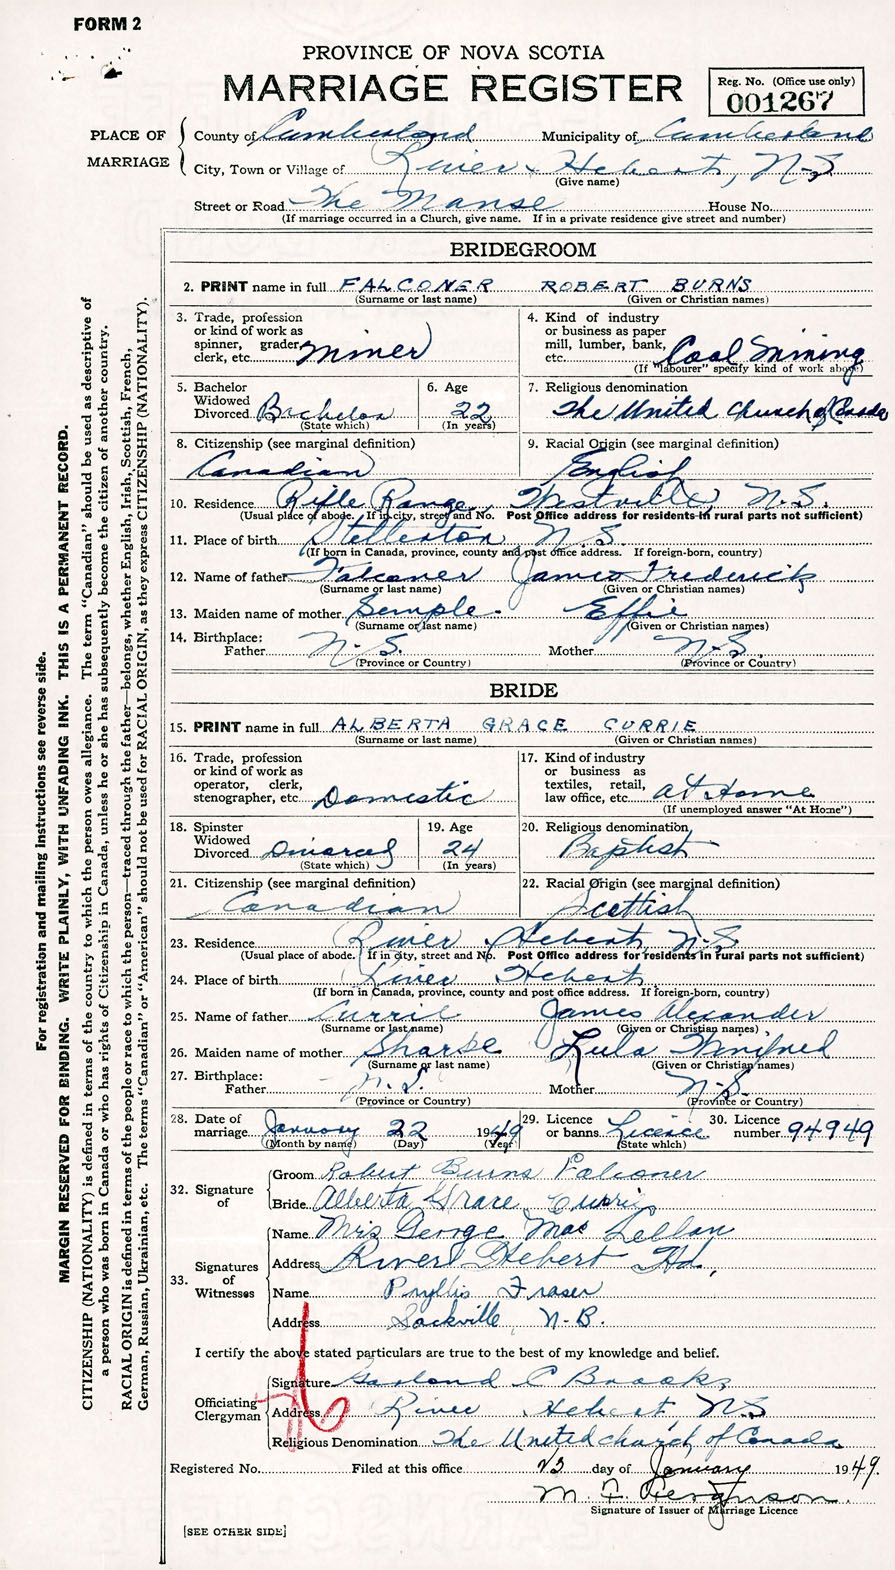 FORM 2
PROVINCE OF NOVA SCOTIA
MARRIAGE REGISTER
Reg. No. (Office use only)
001267
PLACE OF MARRIAGE
County of Cumberland Municipality of Cumberland
City, Town or Village of River Hebert, N-S
(Give name)
Street or Road The Manse House No.
(If marriage occurred in a Church, give name. If in a private residence give street and number)
BRIDEGROOM
2. PRINT name in full FALCONER ROBERT BURNS
(Surname or last name) (Given or Christian names)
3. Trade, profession or kind of work as spinner, grader, clerk, etc. Miner
4. Kind of industry or business as paper mill, lumber, bank, etc. Coal Mining
(If "labourer" specify kind of work above)
5. Bachelor Widowed Divorced Bachelor
(State which)
6. Age 22
(In years)
7. Religious denomination
The United Church of Canada
8. Citizenship (see marginal definition)
Canadian
9. Racial Origin (see marginal definition)
English
10. Residence Rifle Range, Westville, N.S.
(Usual place of abode. If in city, street and No. Post Office address for residents in rural parts not sufficient)
11. Place of birth Stellerton N.S.
(If born in Canada, province, county and post office address. If foreign-born, country)
12. Name of father Falconer James Frederick
(Surname or last name) (Given or Christian names)
13. Maiden name of mother Semple Effie
(Surname or last name) (Given or Christian names)
14. Birthplace:
Father N.S. Mother N.S.
(Province or Country) (Province or Country)
BRIDE
15. PRINT name in full ALBERTA GRACE CURRIE
(Surname or last name) (Given or Christian names)
16. Trade, profession or kind of work as operator, clerk, stenographer, etc. Domestic
17. Kind of industry or business as textiles, retail, law office, etc. At Home
(If unemployed answer "At Home")
18. Spinster Widowed Divorced Divorced
(State which)
19. Age 24
(In years)
20. Religious denomination
Baptist
21. Citizenship (see marginal definition)
Canadian
22. Racial Origin (see marginal definition)
Scottish
23. Residence River Hebert, N-S
(Usual place of abode. If in city, street and No. Post Office address for residents in rural parts not sufficient)
24. Place of birth River Hebert
(If born in Canada, province, county and post office address. If foreign-born, country)
25. Name of father Currie James Alexander
(Surname or last name) (Given or Christian names)
26. Maiden name of mother Sharpe Lula Winifred
(Surname or last name) (Given or Christian names)
27. Birthplace:
Father N.S. Mother N-S.
(Province or Country) (Province or Country)
28. Date of marriage January 22 1949
(Month by name) (Day) (Year)
29. Licence or banns Licence
(State which)
30. Licence number 94949
32. Signature of
Groom Robert Burns Falconer
Bride Alberta Grace Currie
33. Signatures of Witnesses
Name Mrs George MacLellan
Address River Hebert Hd.
Name Phyllis Fraser
Address Sackville, N-B.
I certify the above stated particulars are true to the best of my knowledge and belief.
Officiating Clergyman
Signature Garland C Brooks
Address River Hebert, N.S
Religious Denomination The United church of Canada
Registered No. Filed at this office 23 day of January 1949.
M. F. Ferguson
Signature of Issuer of Marriage Licence
[SEE OTHER SIDE]
For registration and mailing instructions see reverse side.
MARGIN RESERVED FOR BINDING. WRITE PLAINLY, WITH UNFADING INK. THIS IS A PERMANENT RECORD.
CITIZENSHIP (NATIONALITY) is defined in terms of the country to which the person owes allegiance. The term "Canadian" should be used as descriptive of
a person who was born in Canada or who has rights of Citizenship in Canada, unless he or she has subsequently become the citizen of another country.
RACIAL ORIGIN is defined in terms of the people or race to which the person—traced through the father—belongs, whether English, Irish, Scottish, French,
German, Russian, Ukrainian, etc. The terms "Canadian" or "American" should not be used for RACIAL ORIGIN, as they express CITIZENSHIP (NATIONALITY).